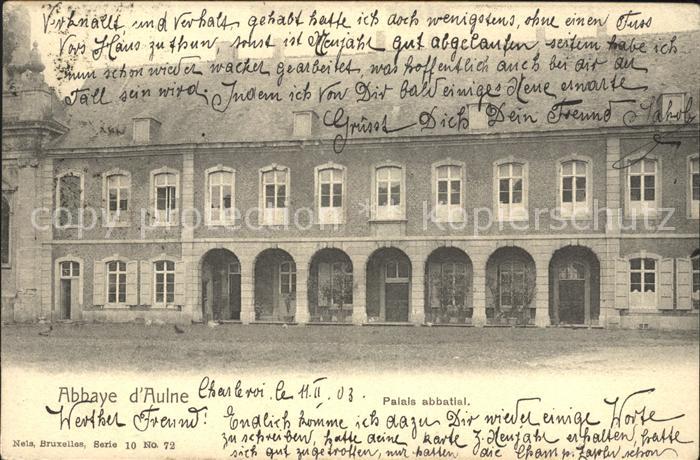 Verknallt und Verhalt gehabt hatte ich doch wenigstens, ohne einen Fuss
Vors Haus zu thun, sonst ist Neujahr gut abgelaufen seitem habe ich
nun schon wieder wacker gearbeitet, was hoffentlich auch bei dir der
Fall sein wird. Indem ich von Dir bald einiges Neue erwarte
Grüsst Dich Dein Freund
copy protection · kopierschutz
Abbaye d'Aulne
Charleroi, le 11. II. 03.
Palais abbatial.
Werther Freund! Endlich komme ich dazu Dir wieder einige Worte
zu schreiben, hatte deine Karte z. Neujahr erhalten, hatte
Nels, Bruxelles, Serie 10 No. 72
sich gut zugetroffen, nur hatten die schon